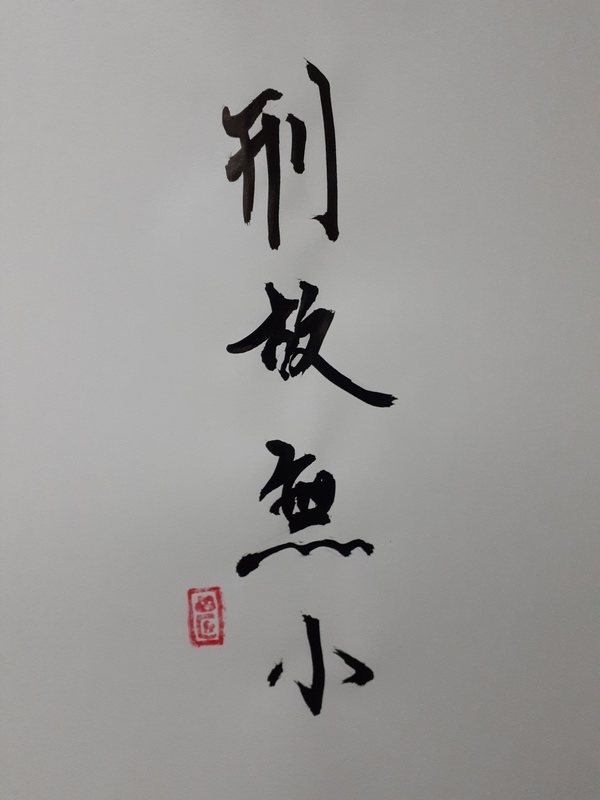 刑故無小